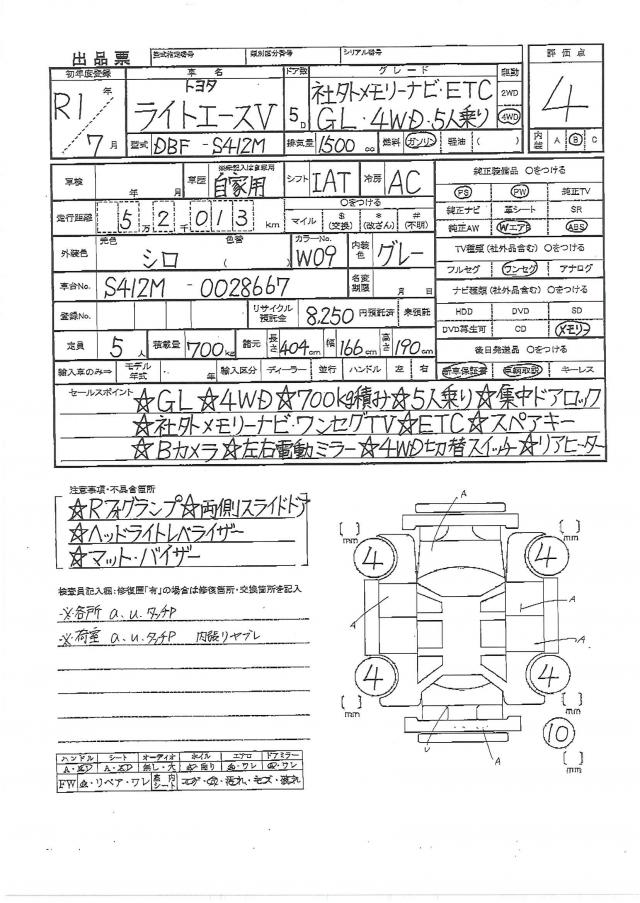 出品票 型式指定番号 類別区分番号 シリアル番号 評価点
初年度登録 車名 ドア数 グレード 駆動
R1年 トヨタ 社外メモリーナビ・ETC 2WD 4
7月 ライトエースV 5D GL・4WD・5人乗り 4WD
型式 DBF - S412M 排気量 1500 cc 燃料 ガソリン・軽油・( ) 内装 A B C
車検 年 月 車歴 ※未記入は自家用 自家用 シフト IAT 冷房 AC 純正装備品 ○をつける
PS PW 純正TV
走行距離 52013km ○をつける
マイル $(交換) *(改ざん) #(不明) 純正ナビ 革シート SR
純正AW WエアB ABS
外装色 元色 シロ 色替 ( ) カラーNo. W09 内装色 グレー TV種類(社外品含む)○をつける
フルセグ ワンセグ アナログ
車台No. S412M - 0028667 名変期限 月 日 ナビ種類(社外品含む)○をつける
登録No. リサイクル預託金 8,250円預託済 未預託 HDD DVD SD
DVD再生可 CD メモリー
定員 5人 積載量 700kg 諸元 長さ 404cm 幅 166cm 高さ 190cm 後日発送品 ○をつける
輸入車のみ⇒ モデル年式 ・ 年 輸入区分 ディーラー 並行 ハンドル 左 右 新車保証書 車輌取説 キーレス
セールスポイント ☆GL ☆4WD ☆700kg積み ☆5人乗り ☆集中ドアロック
☆社外メモリーナビ・ワンセグTV ☆ETC ☆スペアキー
☆Bカメラ ☆左右電動ミラー ☆4WD切替スイッチ ☆リアヒーター
注意事項・不具合箇所
☆Rフォグランプ ☆両側スライドドア
☆ヘッドライトレベライザー
☆マット・バイザー
検査員記入欄:修復歴「有」の場合は修復箇所・交換箇所を記入
※各所 a.u.タッチP
※荷室 a.u.タッチP 内張リヤブレ
A
[ ] mm [ ] mm
4 4
A A
A
4 4
[ ] mm [ ] mm
A
10
[ ] mm
ハンドル シート オーディオ ホイル エアロ ドアミラー
無し・大
FW リペア・ワレ 車内シート 汚れ・キズ